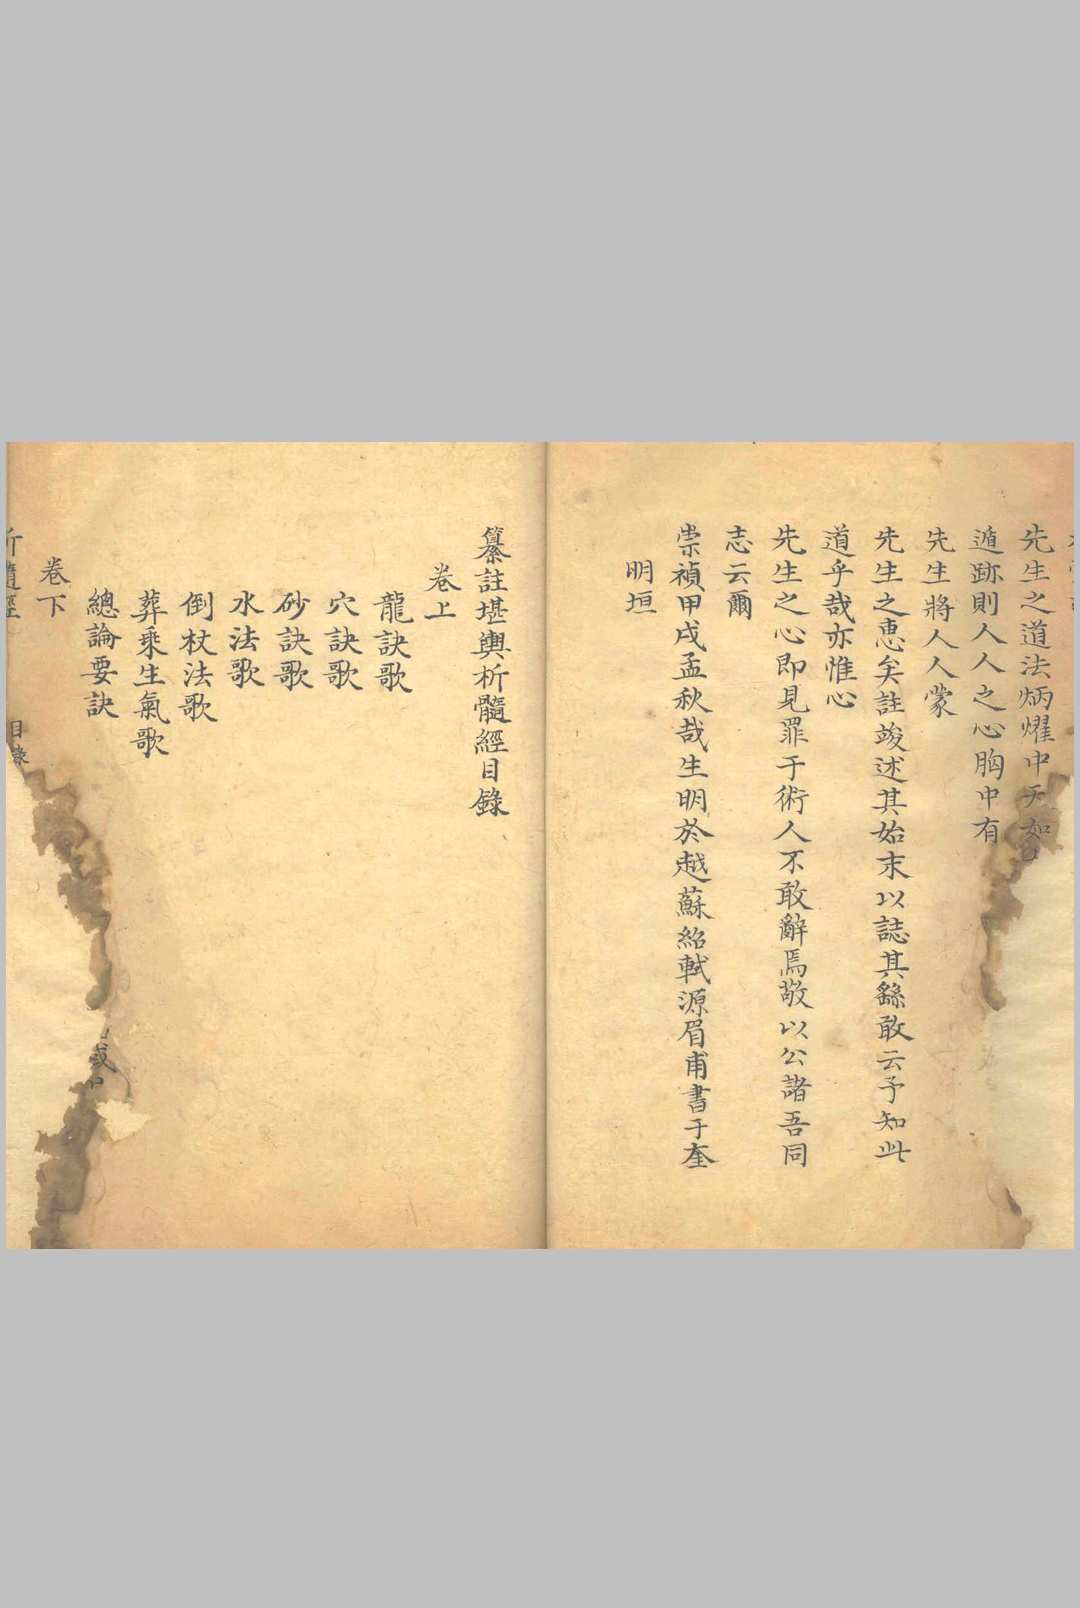 先生之道法炳燿中天如
遁跡則人人之心胸中有
先生將人人蒙
先生之惠矣註竣述其始末以誌其繇敢云予知此
道乎哉亦惟心
先生之心即見罪于術人不敢辭焉敬以公諸吾同
志云爾
崇禎甲戌孟秋哉生明於越蘇紹軾源眉甫書于奎
明垣
纂註堪輿析髓經目錄
卷上
龍訣歌
穴訣歌
砂訣歌
水法歌
倒杖法歌
葬乘生氣歌
總論要訣
卷下
析髓經 目錄